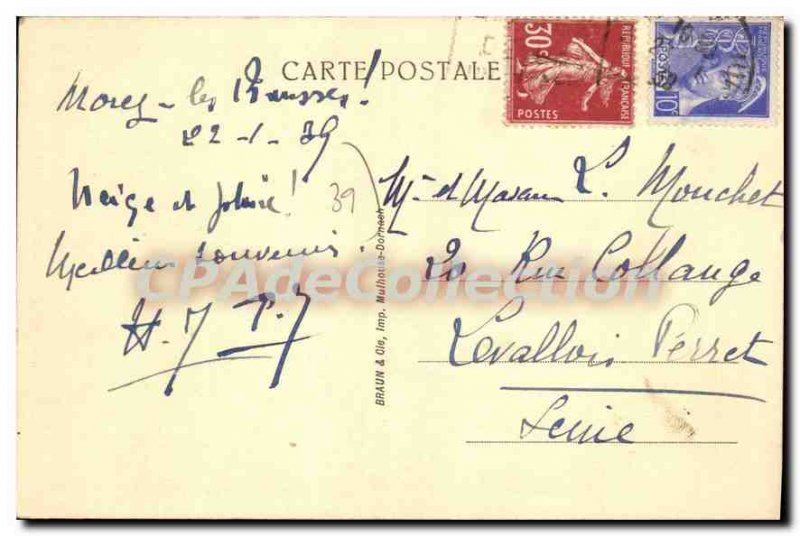 CARTE POSTALE
Morez - les Rousses!
22-1-39
Neige et
Meilleurs souvenirs.
H. J P. J
39
BRAUN & Cie, Imp. Mulhouse-Dornach
30c
REPUBLIQUE FRANÇAISE
POSTES
10c
POSTES
Mr et Madame L. Mouchet
20 Rue Collange
Levallois Perret
Seine
CPAdeCollection